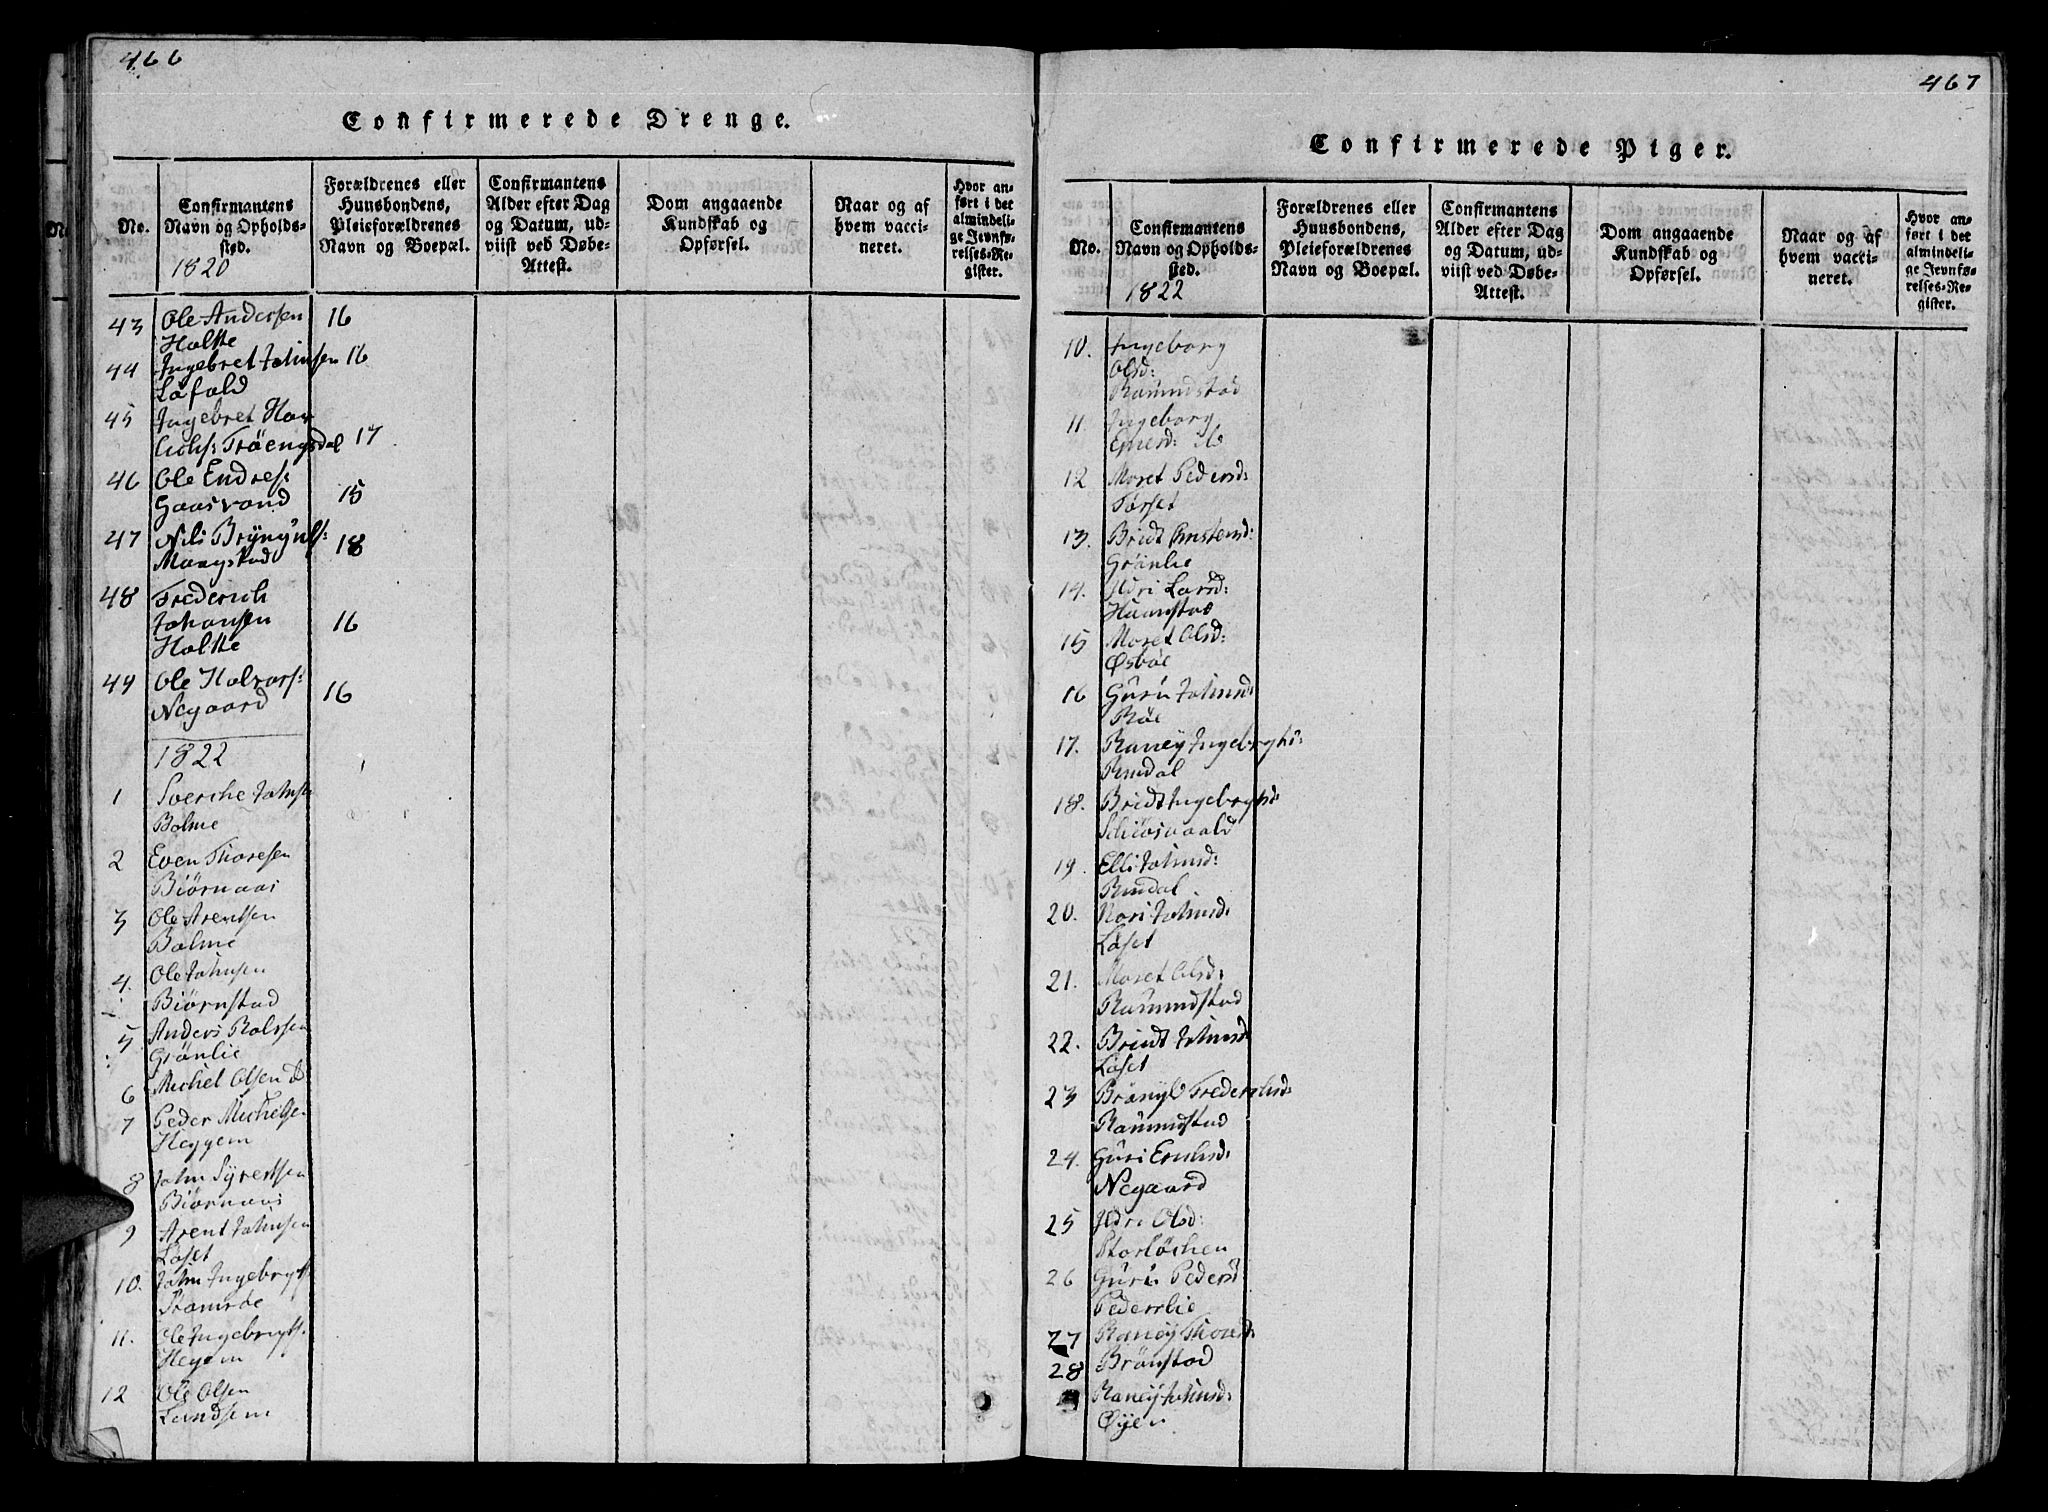 466
Confirmerede Drenge.
No.
Confirmantens
Navn og Opholds-
sted.
Forældrenes eller
Huusbondens,
Pleieforældrenes
Navn og Boepæl.
Confirmantens
Alder efter Dag
og Datum, ud-
viist ved Døbe-
Attest.
Dom angaaende
Kundskab og
Opførsel.
Naar og af
hvem vacci-
neret.
Hvor an-
ført i det
almindeli-
ge Jevnfø-
relses-Re-
gister.
1820
43 Ole Andersen 16
Holtte
44 Ingebret Johnsen 16
Lofald
45 Ingebret Hav
Tröengsdal 17
46 Ole Endres:
Gaasvand 15
47 Nils Brÿnÿulfs: 18
Mogstad
48 Frederich
Johansen 16
Holtte
49 Ole Halvors: 16
Negaard
1822
1 Sverche Johnsen
Bolme
2 Even Thoresen
Biørnaas
3 Ole Arentsen
Bolme
4. Ole Johnsen
Biørnstad
5 Anders Rolvsen
Grönlie
6 Michel Olsen
7 Peder Michelse
Heggem
8 John Sÿvertsen
Biørnaas
9 Arent Johnsen
Löset
10. John Ingebrigts:
11. Ole Ingebrigts.
Hegem
12 Ole Olsen
Lundsem
467
Confirmerede Piger.
No.
Confirmantens
Navn og Opholds-
sted.
Forældrenes eller
Huusbondens,
Pleieforældrenes
Navn og Boepæl.
Confirmantens
Alder efter Dag
og Datum, ud-
viist ved Døbe-
Attest.
Dom angaaende
Kundskab og
Opførsel.
Naar og af
hvem vacci-
neret.
Hvor an-
ført i det
almindeli-
ge Jevnfø-
relses-Re-
gister.
1822
10. Ingeborg
Olsd:
Romundstad
11 Ingeborg
12 Moret Pedersd:
Torset
13. Bridt Arnstensd:
Grønlie
14. Ildri Larsd:
Haanstad
15 Moret Olsd:
Øsböe
16 Guru Johnsd:
Röe
17. Raneÿ Ingebrigts:
Rindal
18. Bridt Ingebrigtsd:
19. Elli Johnsd:
Rindal
20. Kari Johnsd:
Löset
21. Moret Olsd:
Romundstad
22. Brindt Johnsd:
Löset
23 Brönÿl Frederichsd:
Romundstad
24. Guri
Negaard
25 Ildri Olsd:
Storløchen
26 Guri Pedersd
Pederslie
27 Ranöÿ Thorsd:
28 Brönstad
Raneÿ Johnsd:
Øÿen